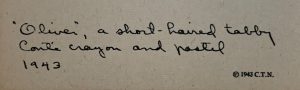 "Oliver", a short-haired tabby
Conte crayon and pastel
1943
© 1943 C.T.N.